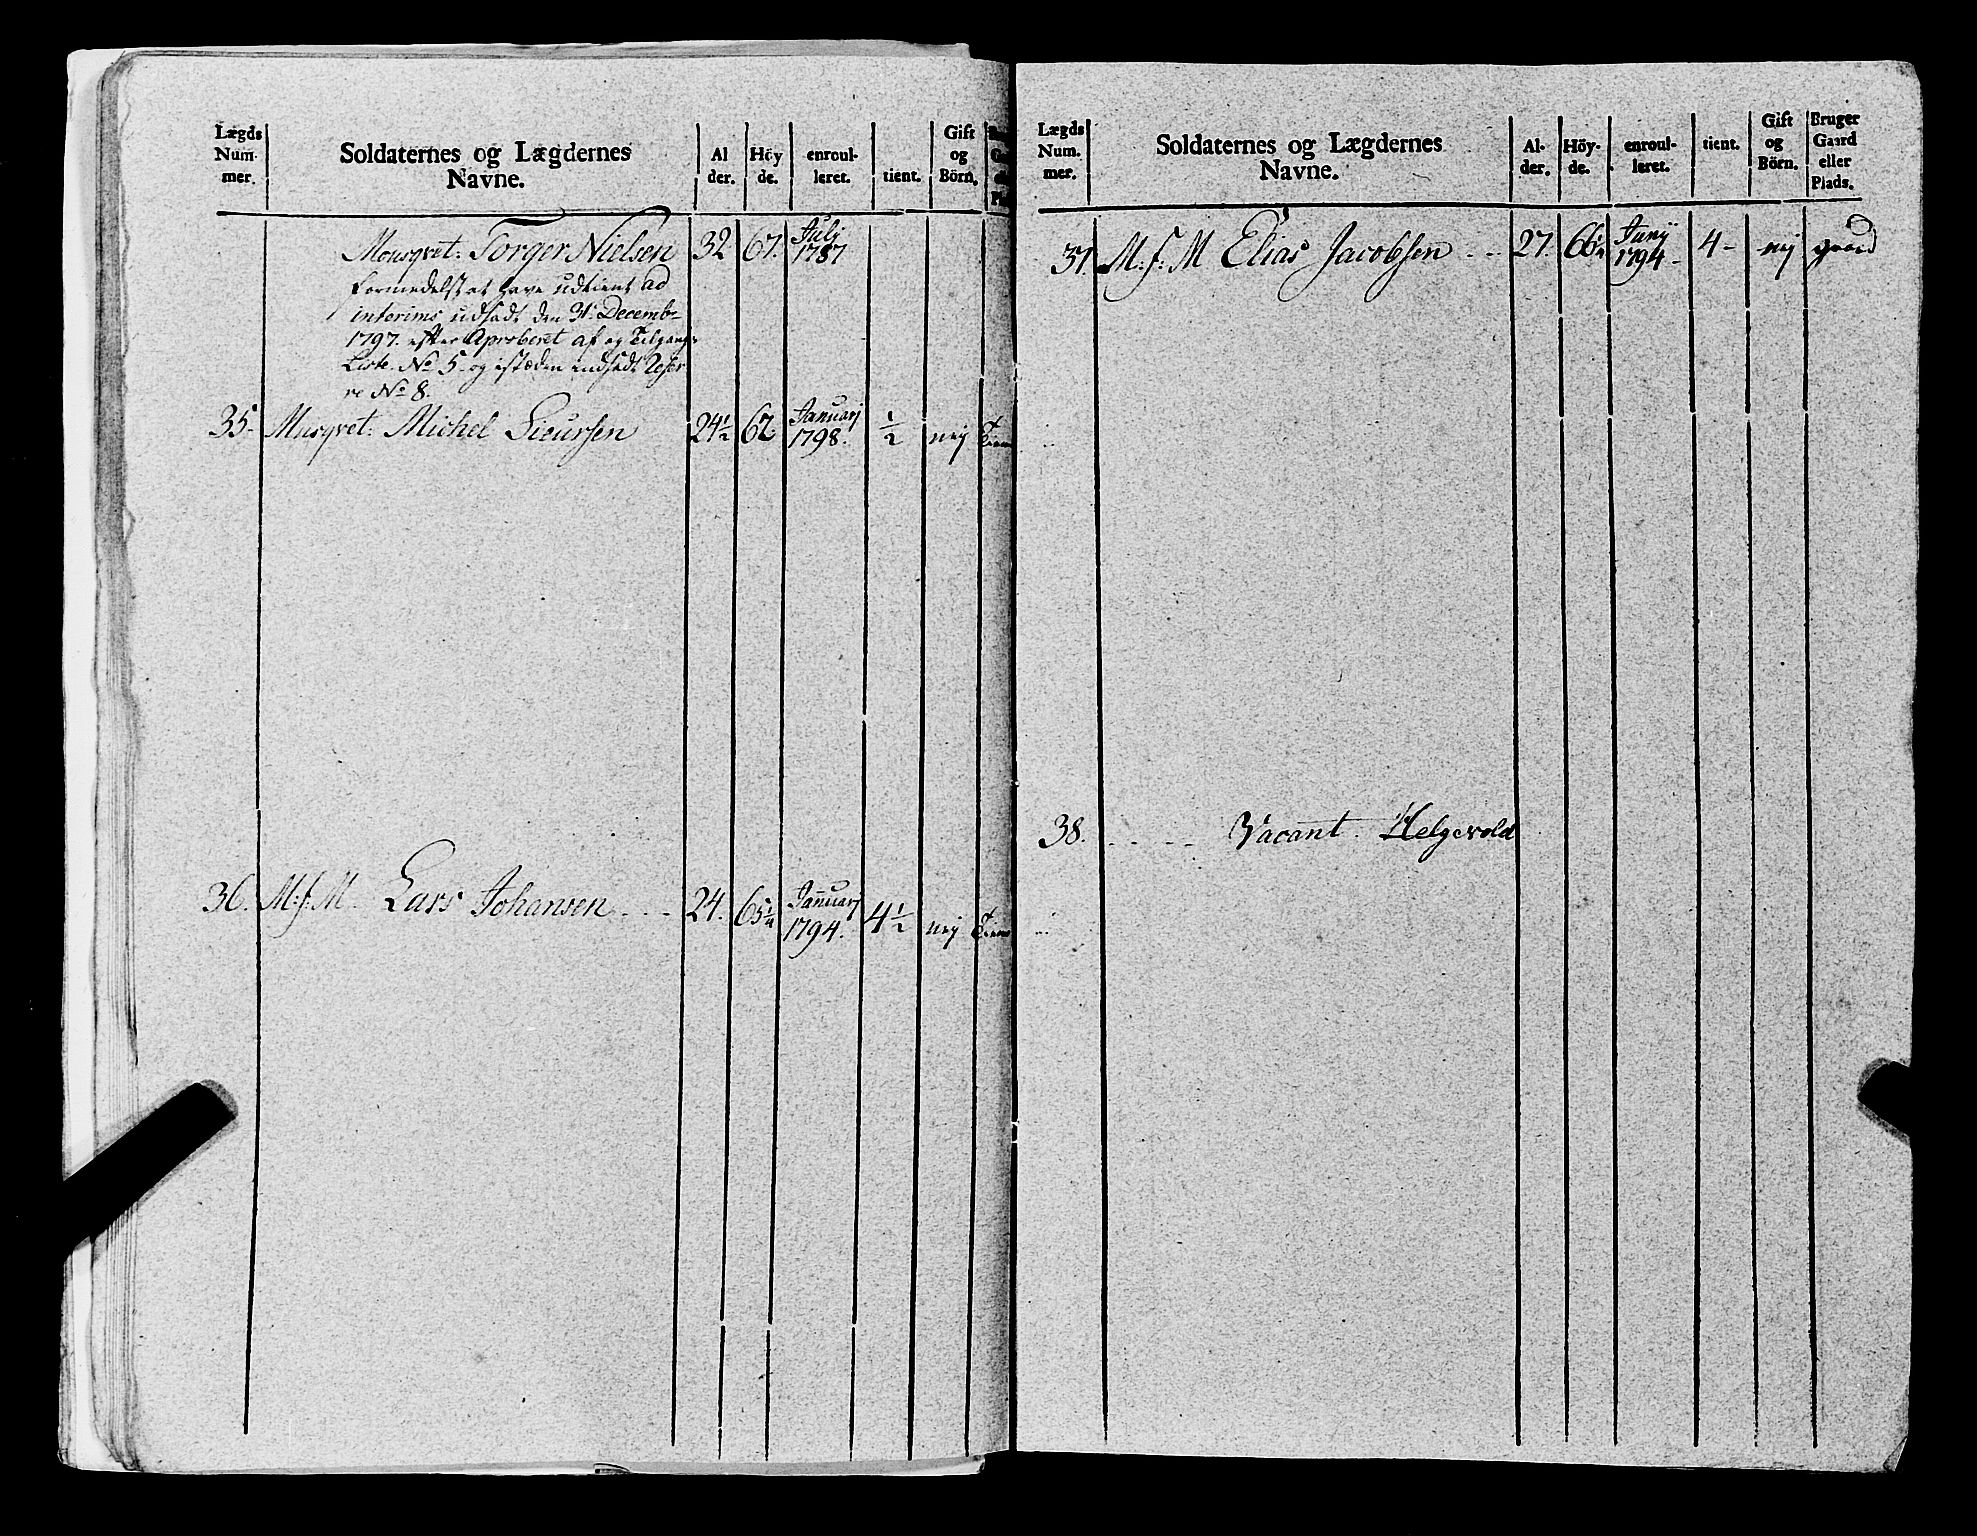 Lægds Num- mer. Soldaternes og Lægdernes Navne. Al der. Höy de. enroul- leret. tient. Gift og Börn.
Mousqvet: Torger Nielsen 32 67. Julj 1787
formedelst at have udtient ad
interims udsadt den 31. Decemb-
1797. efter Aproberet af og Tilgangs
Liste. No 5. og istæden indsadt Reser
ve No 8.
35. Musqvet. Michel Sieursen 24½ 62 Januarj 1798. ½ nej
36. M: f: M. Lars Johansen 24. 65¼ Januarj 1794. 4½ nej
Lægds Num. mer. Soldaternes og Lægdernes Navne. Al- der. Höy- de. enroul- leret. tient. Gift og Börn. Bruger Gaard eller Plads.
37. M: f: M Elias Jacobsen 27. 66½ Junij 1794. 4- nej gaard
38. Vacant. Helgevold